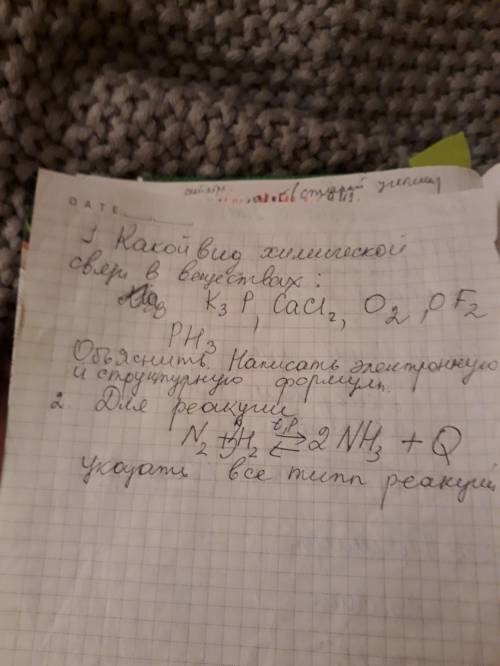 DATE
1 Какой вид химической
связи в веществах:
K3P, CaCl2, O2, OF2
PH3
Объяснить. Написать электронную
и структурную формулы.
2. Для реакции
t,p
N2 + 3H2 ⇄ 2NH3 + Q
указать все типы реакций